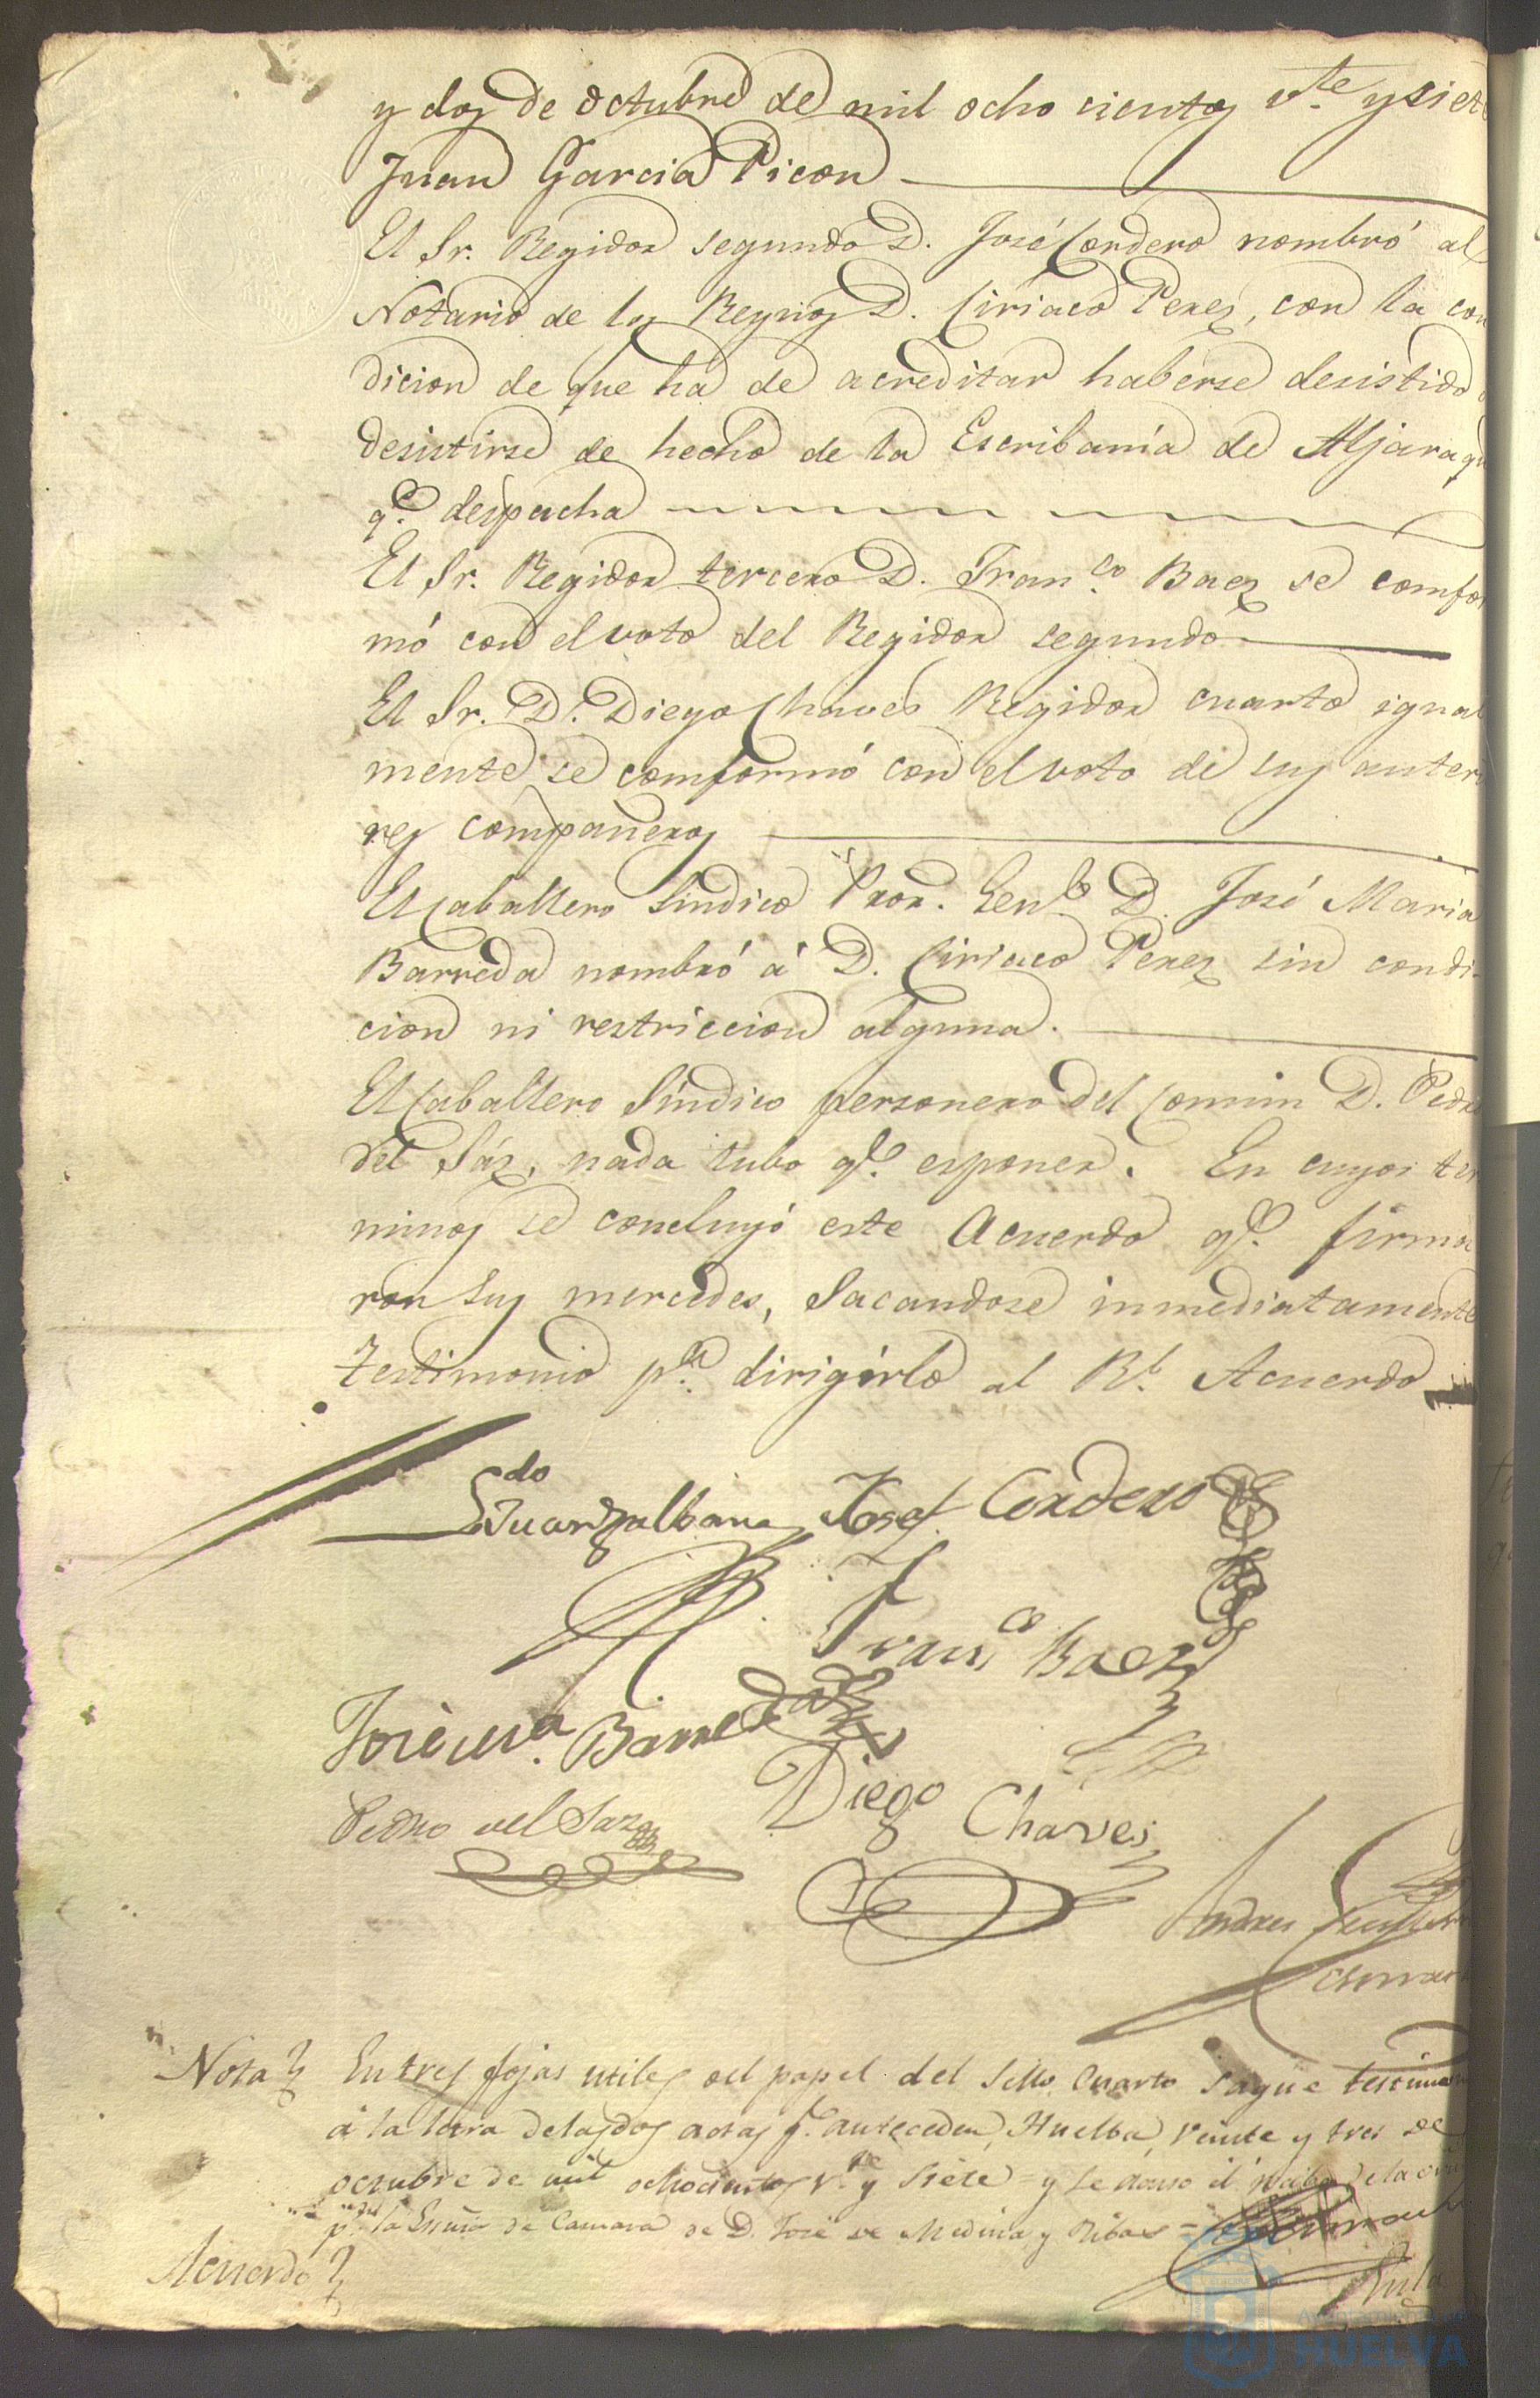 y dos de Octubre de mil ocho cientos v.te y siete
Juan Garcia Picon
El Sr. Regidor segundo D. José Cordero nombró al
Notario de los Reynos D. Ciriaco Perez, con la con
dicion de que ha de acreditar haberse desistido o
desistirse de hecho de la Escribanía de Aljaraque
q.e despacha
El Sr. Regidor tercero D. Fran.co Baez se confor
mó con el voto del Regidor segundo
El Sr. D. Diego Chaves Regidor cuarto igual
mente se comformó con el voto de sus anterio
res compañeros
El Caballero Sindico Pror. Gen.l D. José Maria
Barreda nombró á D. Ciriaco Perez sin condi
cion ni restriccion alguna.
El Caballero Sindico personero del Comun D. Pedro
del Sáz, nada tubo q.e esponer. En cuyos ter
minos se concluyó este Acuerdo q.e firma
ron sus mercedes, Sacandose inmediatamente
testimonio p.a dirigirlo al R.l Acuerdo
Josef Cordero
Fran.co Baez
José M.a Barreda
Diego Chaves
Pedro del Saz
Andres
Nota En tres fojas utiles del papel del Sello Cuarto saqué testimonio
á la letra de las dos actas q.e anteceden, Huelba, veinte y tres de
octubre de mil ochocientos v.te y siete = y se
p.r la Esnia de Camara de D. José de Medina y Ribas =
Acuerdo
HUELVA